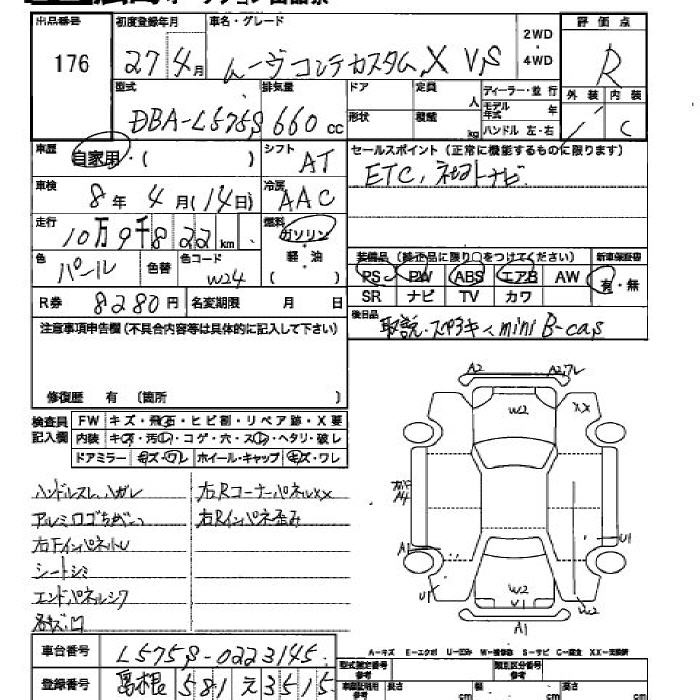 出品番号 初度登録年月 車名・グレード 2WD・4WD 評価点
176 27年4月 ムーヴコンテカスタム X VS R
型式 排気量 ドア 定員 人 ディーラー・並行 外装 内装
DBA-L575S 660cc 形状 積載 kg モデル年式 年 ハンドル 左・右 C
車歴 自家用・( ) シフト AT セールスポイント (正常に機能するものに限ります)
車検 8年4月(14日) 冷房 AAC ETC,ナビ
走行 10万9千822km 燃料 ガソリン・軽油
色 パール 色替 色コード W24
装備品 (純正品に限り○をつけてください) 新車保証書
PS PW ABS エアB AW 有・無
SR ナビ TV カワ
R券 8280円 名変期限 月 日
後日品 取説・スペアキー mini B-cas
注意事項申告欄 (不具合内容等は具体的に記入して下さい)
修復歴 有 〔箇所 〕
検査員記入欄
FW キズ・飛石・ヒビ割・リペア跡・X要
内装 キズ・汚れ・コゲ・穴・スレ・ヘタリ・破レ
ドアミラー キズ・ワレ ホイール・キャップ キズ・ワレ
ハンドルスレ、ハガレ 右RコーナーパネルXX
右Rインパネ歪み
右FインパネU
シートシミ
エンドパネルシワ
A2
W2
XX
A4
A1
U1
U1
W2
V1
W2
A1
A-キズ E-エクボ U-凹み W-補修跡 S-サビ C-腐食 XX-交換済
車台番号 L575S-0223145
型式指定番号 参考 類別区分番号 参考
登録番号 島根 581 え 3515
車庫証明用 参考 長さ cm 幅 cm 高さ cm